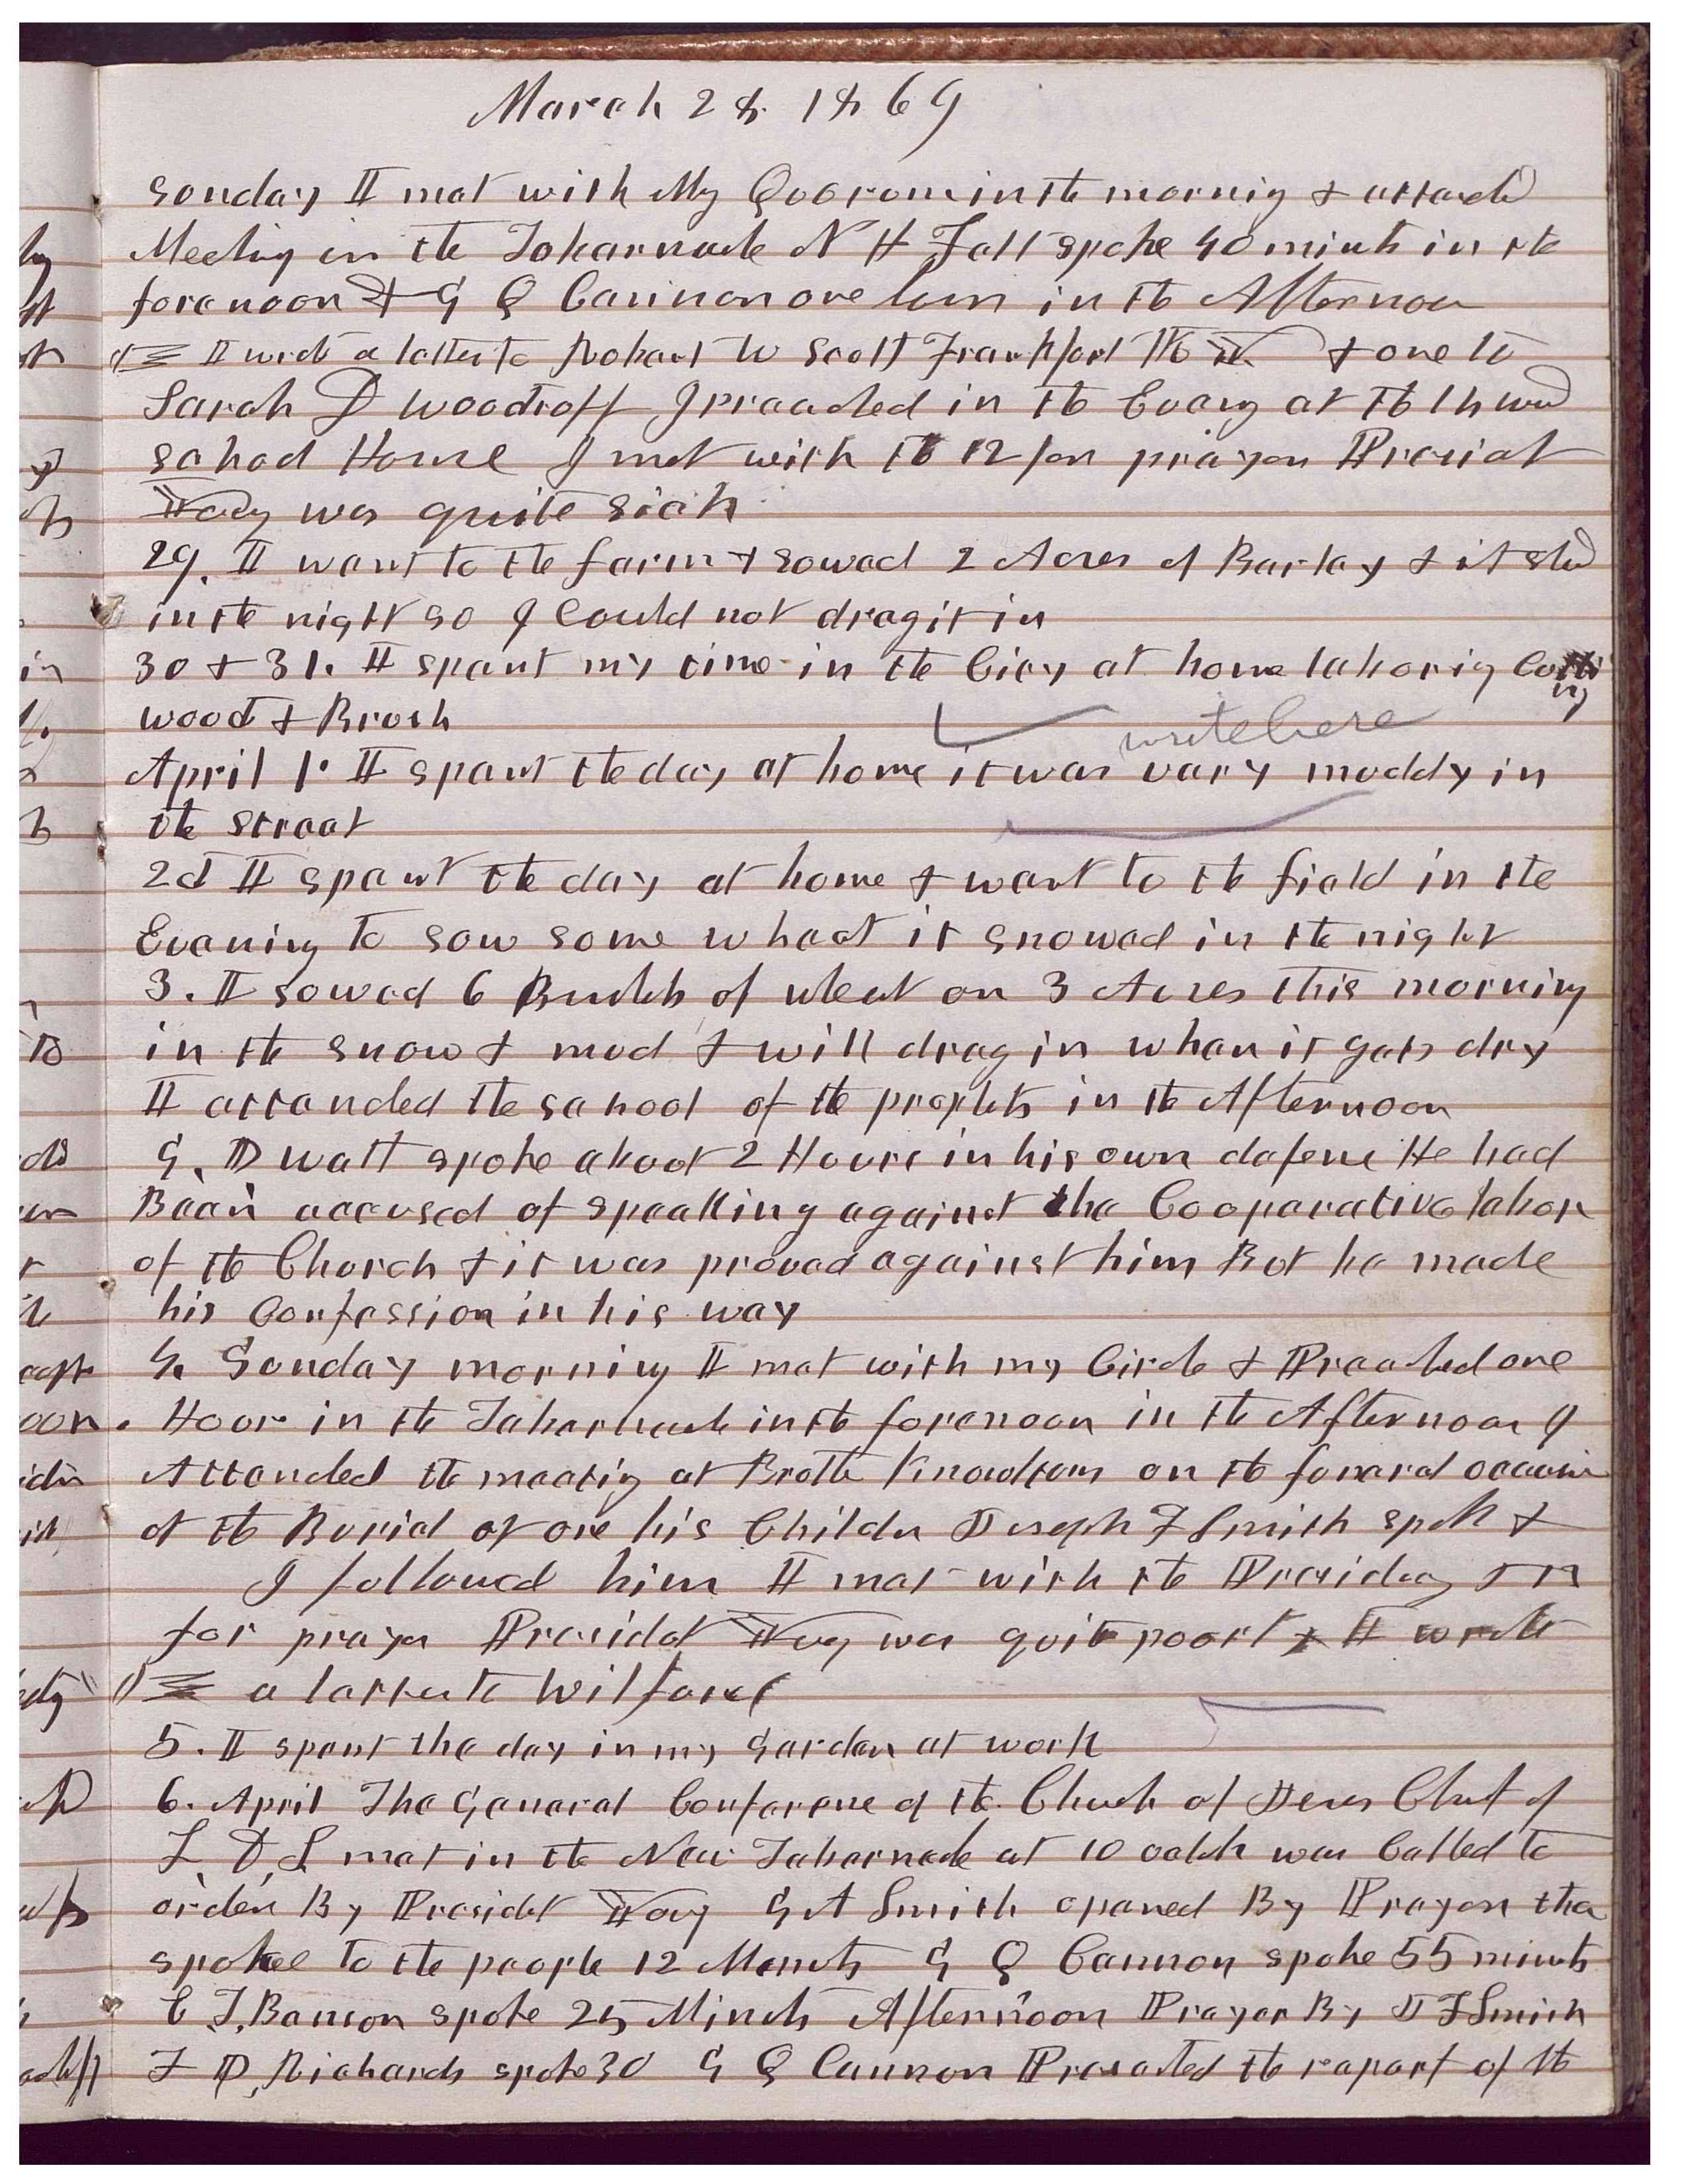 March 28. 1869
Sonday I met with My Quorum in the morning & attend
Meeting in the Tabernacle N H Felt spoke 40 minuts in the
forenoon & G Q Cannon one hour in the Afternoon
I wrote a letter to Robert W Scott Frankford & one to
Sarah D Woodruff I preached in the Evening at the 14 ward
School House I met with the 12 for prayer President
was quite sick
29. I went to the farm & sowed 2 Acres of Barley & it
in the night so I Could not drag it in
30 & 31. I spent my time in the City at home laboring Cutting
wood & Brush
write here
April 1. I spent the day at home it was very muddy in
the street
2d I spent the day at home & went to the field in the
Evening to sow some wheat it snowed in the night
3. I sowed 6 Bushels of wheat on 3 Acres this morning
in the snow & mud & will drag in when it gets dry
I attended the school of the prophets in the Afternoon
G. D Watt spoke about 2 Hours in his own defence He had
Been accused of speaking against the Cooperative labor
of the Church & it was proved against him But he made
his Confession in his way
4. Sunday morning I met with my Circle & Preached one
Hour in the Tabernacle in the forenoon in the Afternoon I
Attended the meeting at Brother Knowltons on the funeral occasion
of the Burial of one his Children Joseph F Smith spoke &
I followed him I met with the Presidency
for prayer President was quite poorly & I wrote
a letter to Wilford
5. I spent the day in my Garden at work
6. April The General Conference of the Church of Jesus Christ of
L. D. S. met in the New Tabernacle at 10 oclok was Called to
order By President G A Smith opened By Prayer the
spoke to the people 12 Minuts G Q Cannon spoke 55 minuts
E T. Benson spoke 25 Minuts Afternoon Prayer By J F Smith
F D, Richards spoke 30 G Q Cannon Presented the report of the